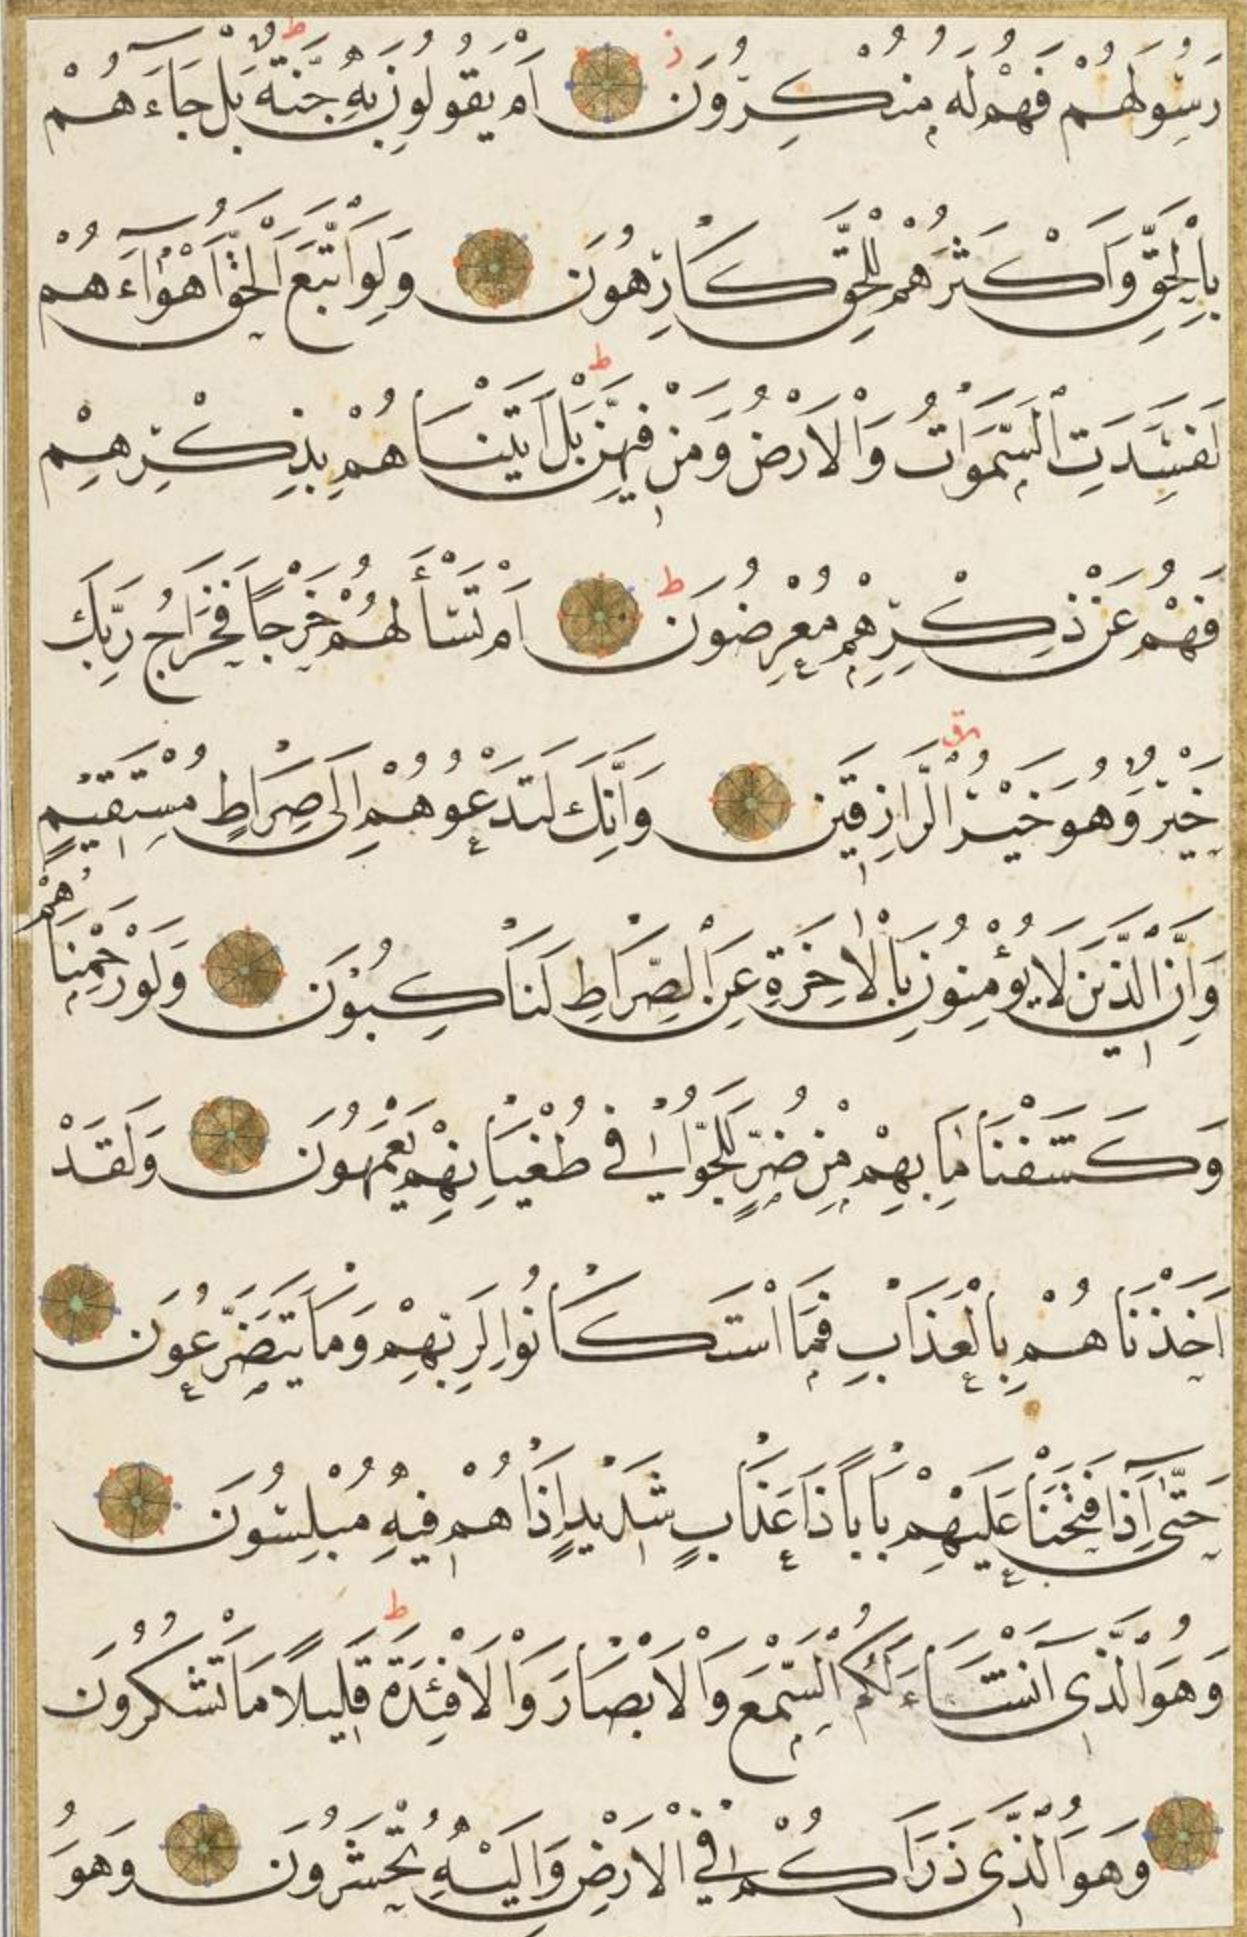 رَسُولَهُمْ فَهُمْ لَهُ مُنْكِرُونَ اَمْ يَقُولُونَ بِهِ جِنَّةٌ بَلْ جَاءَهُمْ
بِالْحَقِّ وَاَكْثَرُهُمْ لِلْحَقِّ كَارِهُونَ وَلَوِ اتَّبَعَ الْحَقُّ اَهْوَاءَهُمْ
لَفَسَدَتِ السَّمٰوَاتُ وَالْاَرْضُ وَمَنْ فِيهِنَّ بَلْ اَتَيْنَاهُمْ بِذِكْرِهِمْ
فَهُمْ عَنْ ذِكْرِهِمْ مُعْرِضُونَ اَمْ تَسْأَلُهُمْ خَرْجًا فَخَرَاجُ رَبِّكَ
خَيْرٌ وَهُوَ خَيْرُ الرَّازِقِينَ وَاِنَّكَ لَتَدْعُوهُمْ اِلَى صِرَاطٍ مُسْتَقِيمٍ
وَاِنَّ الَّذِينَ لَا يُؤْمِنُونَ بِالْاٰخِرَةِ عَنِ الصِّرَاطِ لَنَاكِبُونَ وَلَوْ رَحِمْنَاهُمْ
وَكَشَفْنَا مَا بِهِمْ مِنْ ضُرٍّ لَلَجُّوا فِي طُغْيَانِهِمْ يَعْمَهُونَ وَلَقَدْ
اَخَذْنَاهُمْ بِالْعَذَابِ فَمَا اسْتَكَانُوا لِرَبِّهِمْ وَمَا يَتَضَرَّعُونَ
حَتّٰى اِذَا فَتَحْنَا عَلَيْهِمْ بَابًا ذَا عَذَابٍ شَدِيدٍ اِذَا هُمْ فِيهِ مُبْلِسُونَ
وَهُوَ الَّذِى اَنْشَاءَ لَكُمُ السَّمْعَ وَالْاَبْصَارَ وَالْاَفْئِدَةَ قَلِيلًا مَا تَشْكُرُونَ
وَهُوَ الَّذِى ذَرَاَكُمْ فِي الْاَرْضِ وَاِلَيْهِ تُحْشَرُونَ وَهُوَ